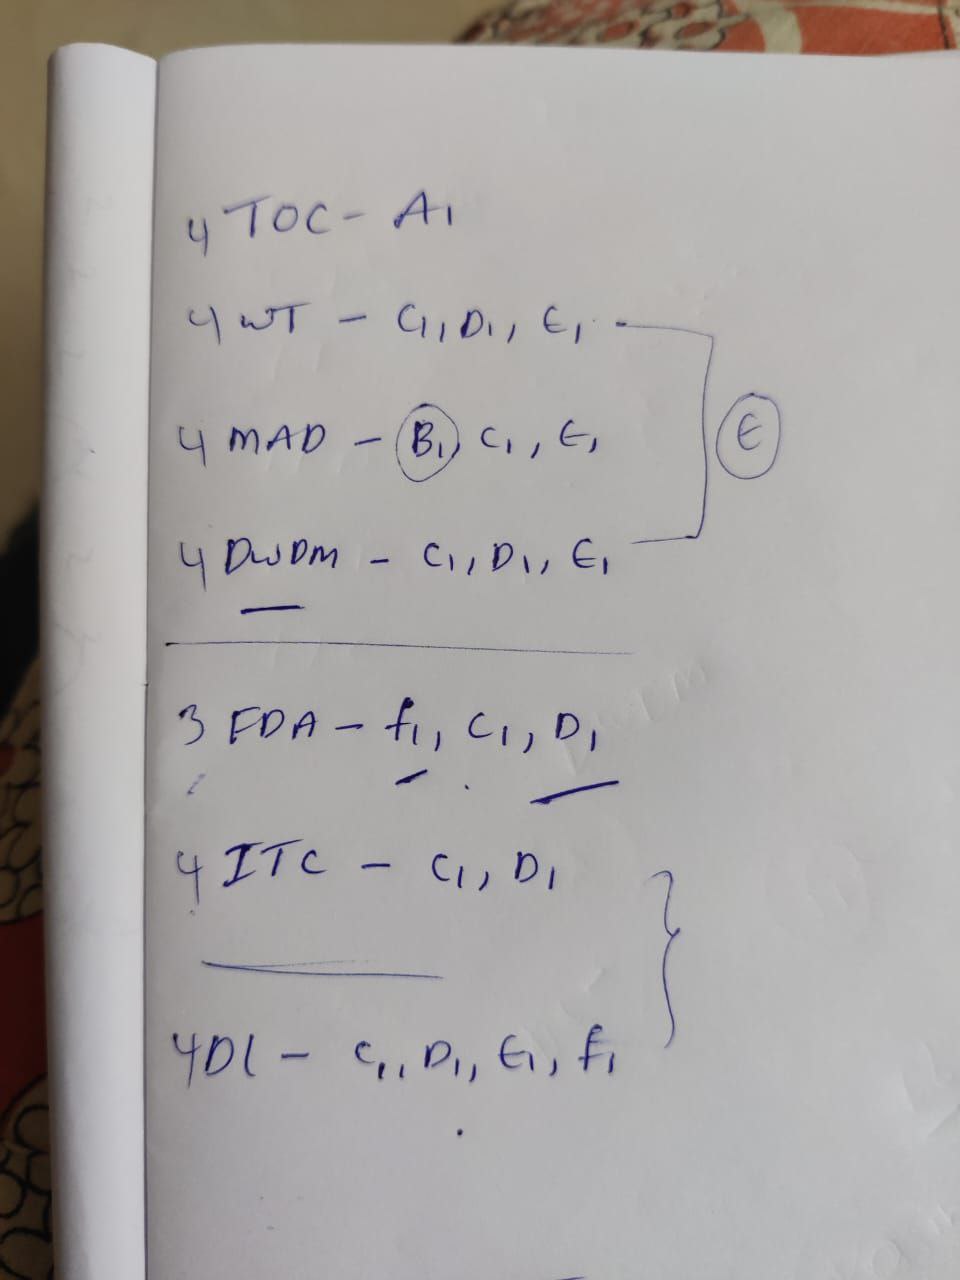 4 TOC - A1
4 WT - C1, D1, E1
4 MAD - B1, C1, E1
E
4 DWDM - C1, D1, E1
3 FDA - f1, C1, D1
4 ITC - C1, D1
4 DL - C1, D1, E1, f1